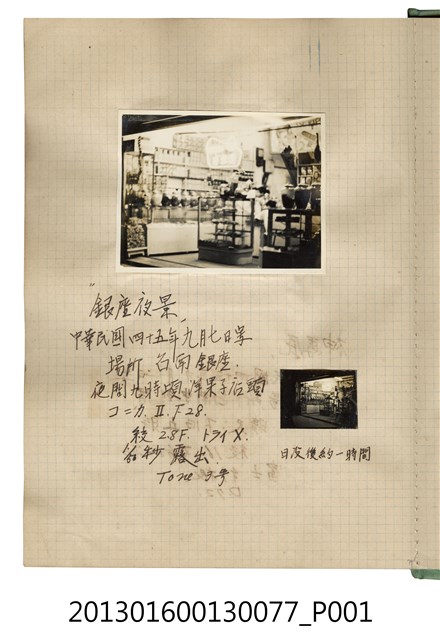 "銀座夜景"
中華民國四十五年九月七日写
場所 台南銀座.
夜間九時頃,洋菓子店頭
コニカ. Ⅱ. F 28.
絞 2.8F. トライX.
秒 露出.
Tone 3号
日没後約一時間
201301600130077_P001